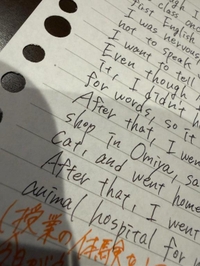 class on
last English
I was nervous
not to speak
I want to tell
Even though
It, I didn't h
for words, so it
After that, I wen
shop in Omiya, sa
Cat, and went home
After that, I went
animal hospital for
(授業の